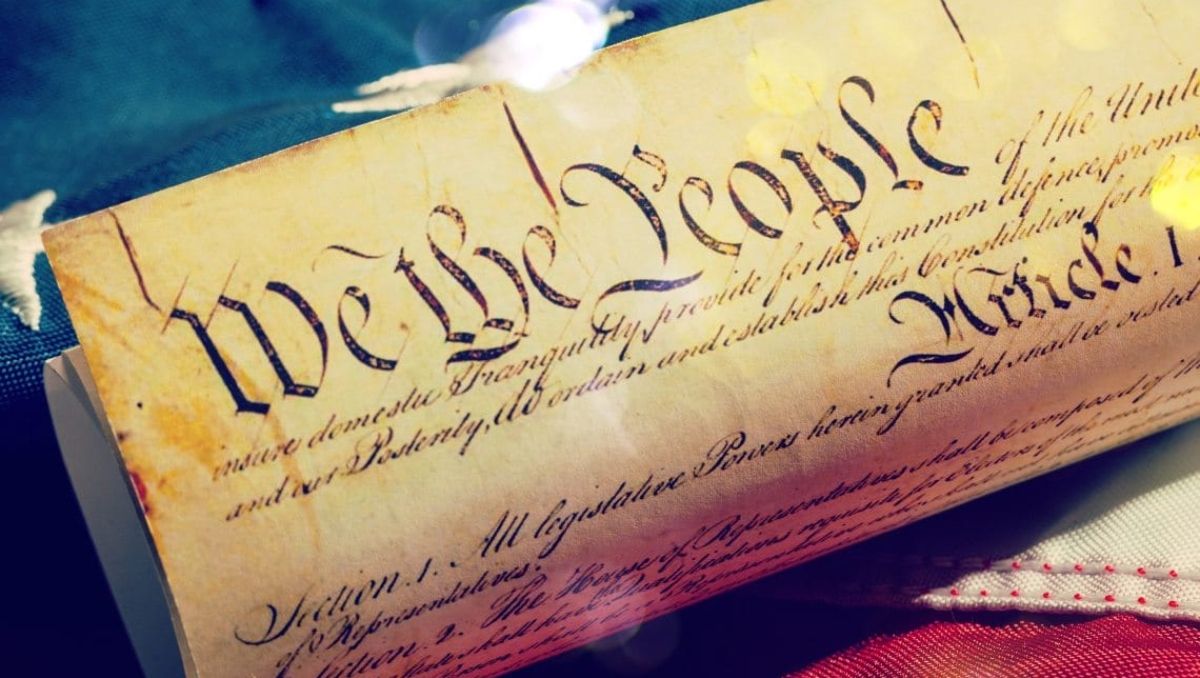 We the People of the Unite
insure domestic Tranquility, provide for the common defence, promo
and our Posterity, do ordain and establish this Constitution for the
Article. I
Section. 1. All legislative Powers herein granted shall be vested
of Representatives.
Section. 2. The House of Representatives shall be composed of